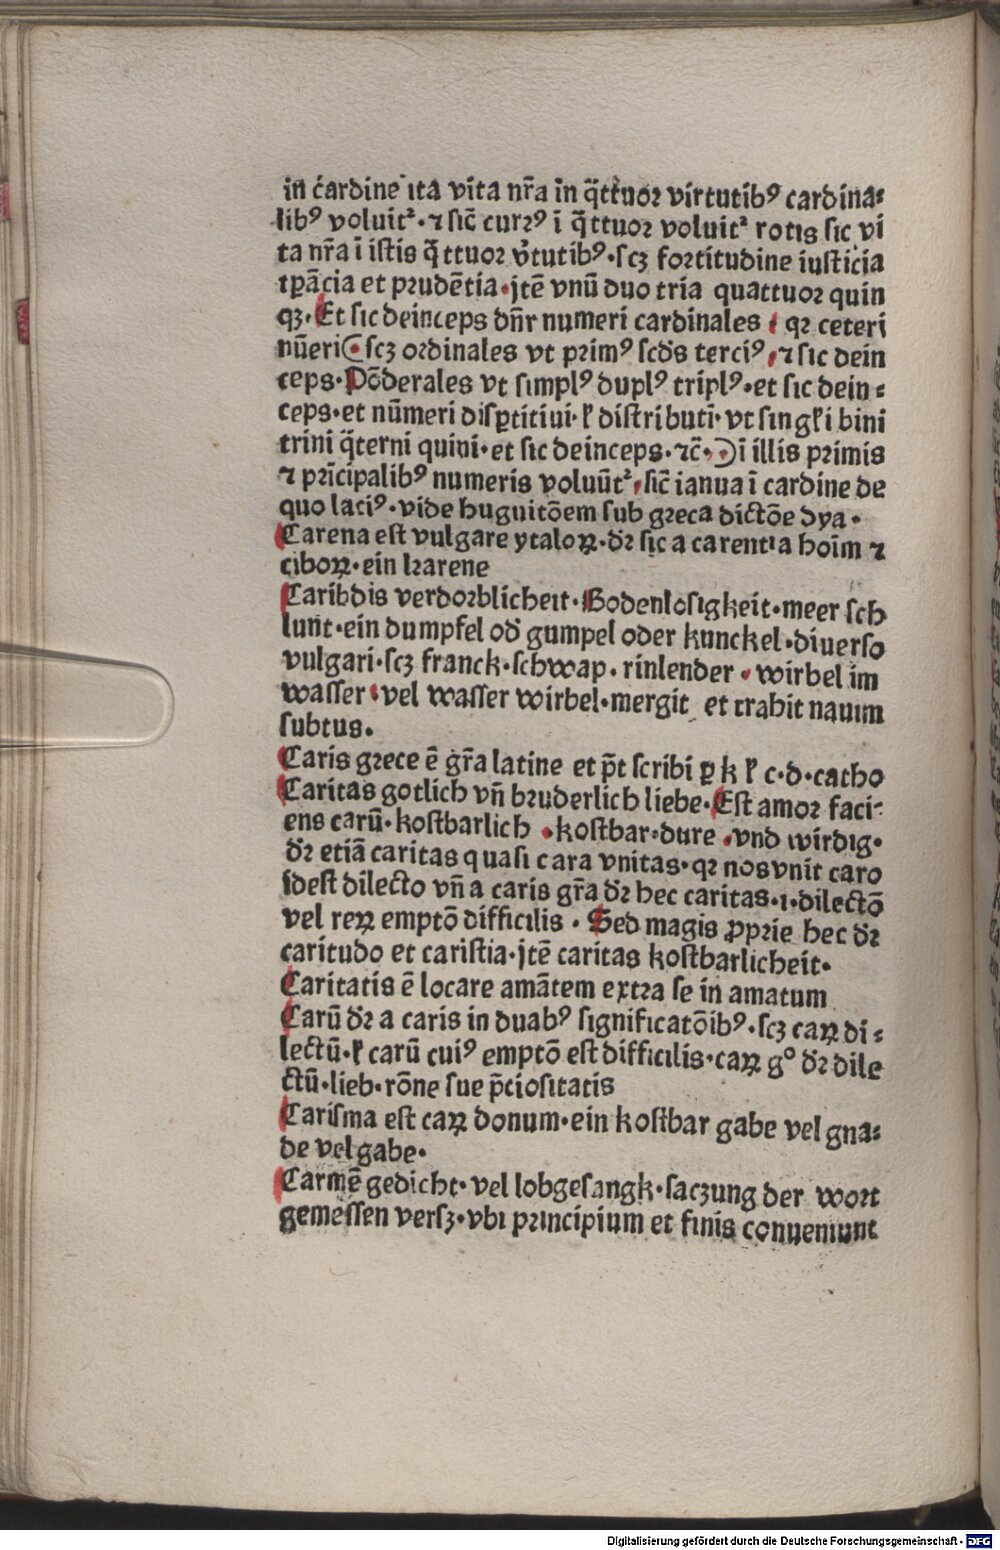 in cardine ita vita nr̃a in q̃ttuoꝛ virtutibꝰ cardina⸗
libꝰ voluit᷑·⁊ sic̃ curꝛꝰ ī q̃ttuoꝛ voluit᷑ rotis sic vi
ta nr̃a ī istis q̃ttuoꝛ v̓tutibꝰ·scꝫ foꝛtitudine iusticia
tꝑãcia et pꝛudẽtia·jtẽ vnũ duo tria quattuoꝛ quin
qꝫ·Et sic deinceps dñr numeri cardinales qꝛ ceteri
nũeri(scꝫ oꝛdinales vt pꝛimꝰ scđs terciꝰ,⁊ sic dein
ceps·Põderales vt simplꝰ duplꝰ triplꝰ·et sic dein⸗
ceps·et nũmeri disꝑtitiui·ł distributī·vt singłi bini
trini q̃terni quini·et sic deinceps·⁊c̃·)ī illis pꝛimis
⁊ pꝛĩcipalibꝰ numeris voluũt᷑,sic̃ ianua ī cardine de
quo laciꝰ·vide huguitõem sub gꝛeca dictõe dya·
Carena est vulgare ytaloꝝ·dꝛ̃ sic a carentia hoĩm ⁊
ciboꝝ·ein karene
Caribdis verdoꝛblicheit·Bodenlosigkeit·meer sch
lunt·ein dumpfel od̓ gumpel oder kunckel·diuerso
vulgari·scꝫ franck·schwap·rinlender·wirbel im
wasser·vel wasser wirbel·mergit et trahit nauim
subtus·
Caris gꝛece ẽ gr̃a latine et p̃t scribi ꝑ k ł c·d·catho
Caritas gotlich vñ bꝛuderlich liebe·Est amoꝛ faci⸗
ens carũ·kostbarlich·kostbar·dure·vnd wirdig·
dꝛ̃ etiã caritas quasi cara vnitas·qꝛ nos vnit caro
idest dilecto vñ a caris gr̃a dꝛ̃ hec caritas·i·dilectõ
vel reꝝ emptõ difficilis·Sed magis ꝓpꝛie hec dꝛ̃
caritudo et caristia·jtẽ caritas kostbarlicheit·
Caritatis ẽ locare amãtem extra se in amatum
Carũ dꝛ̃ a caris in duabꝰ significatõibꝰ·scꝫ caꝝ di⸗
lectũ·ł carũ cuiꝰ emptõ est difficilis·caꝝ gͦ dꝛ̃ dile
ctũ·lieb·rõne sue p̃ciositatis
Carisma est caꝝ donum·ein kostbar gabe vel gna⸗
de vel gabe·
Carmẽ gedicht·vel lobgesangk·saczung der woꝛt
gemessen versꝫ·vbi pꝛincipium et finis conueniunt
Digitalisierung gefördert durch die Deutsche Forschungsgemeinschaft - DFG